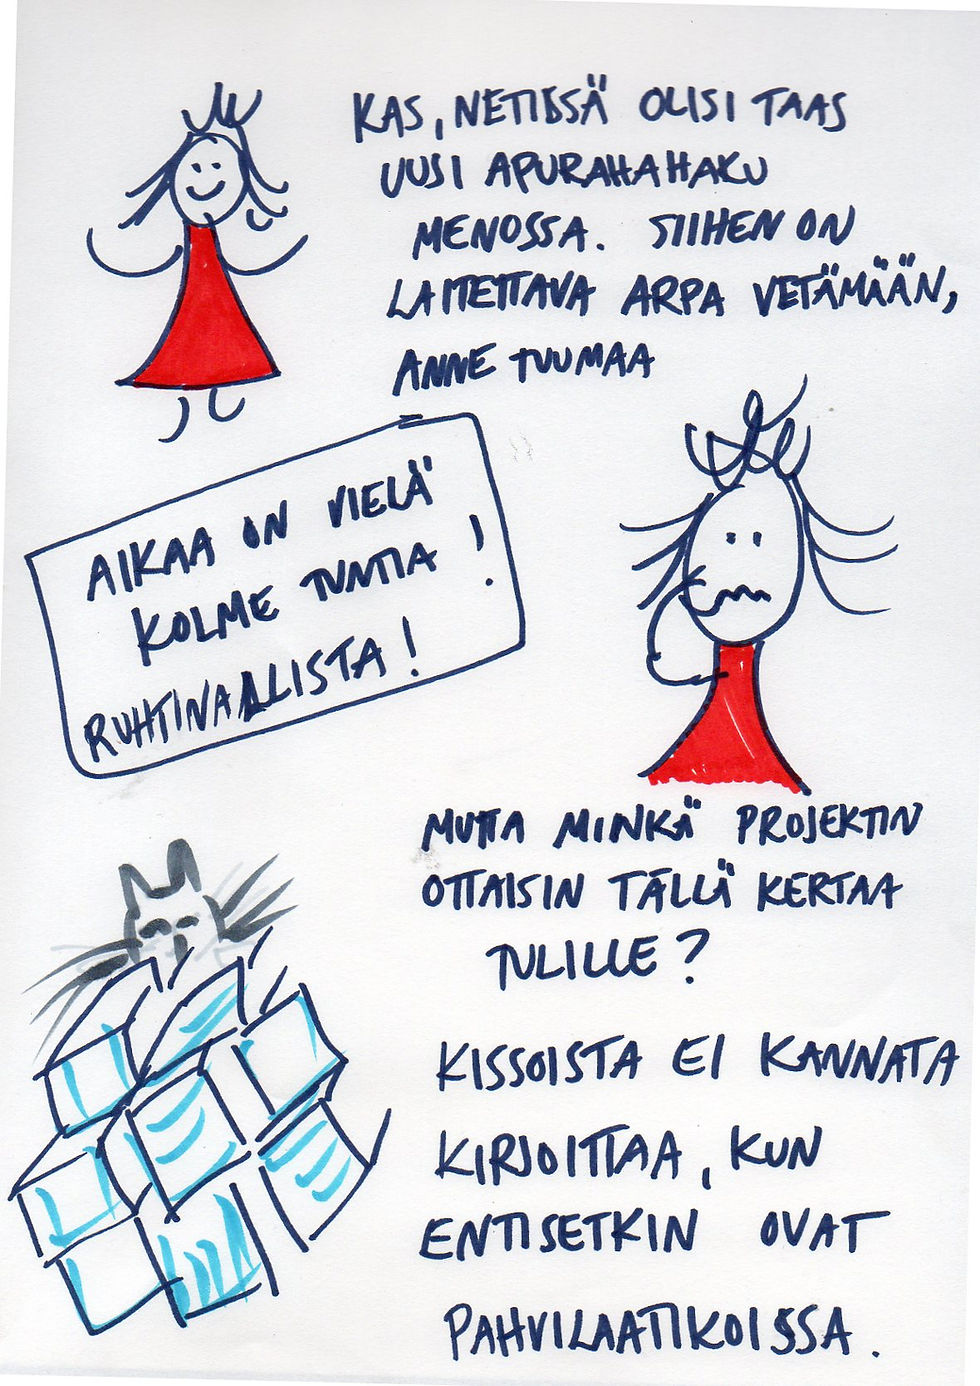 KAS, NETISSÄ OLISI TAAS
UUSI APURAHAHAKU
MENOSSA. SIIHEN ON
LAITETTAVA ARPA VETÄMÄÄN,
ANNE TUUMAA
AIKAA ON VIELÄ
KOLME TUNTIA !
RUHTINAALLISTA!
MUTTA MINKÄ PROJEKTIN
OTTAISIN TÄLLÄ KERTAA
TULILLE?
KISSOISTA EI KANNATA
KIRJOITTAA, KUN
ENTISETKIN OVAT
PAHVILAATIKOISSA.